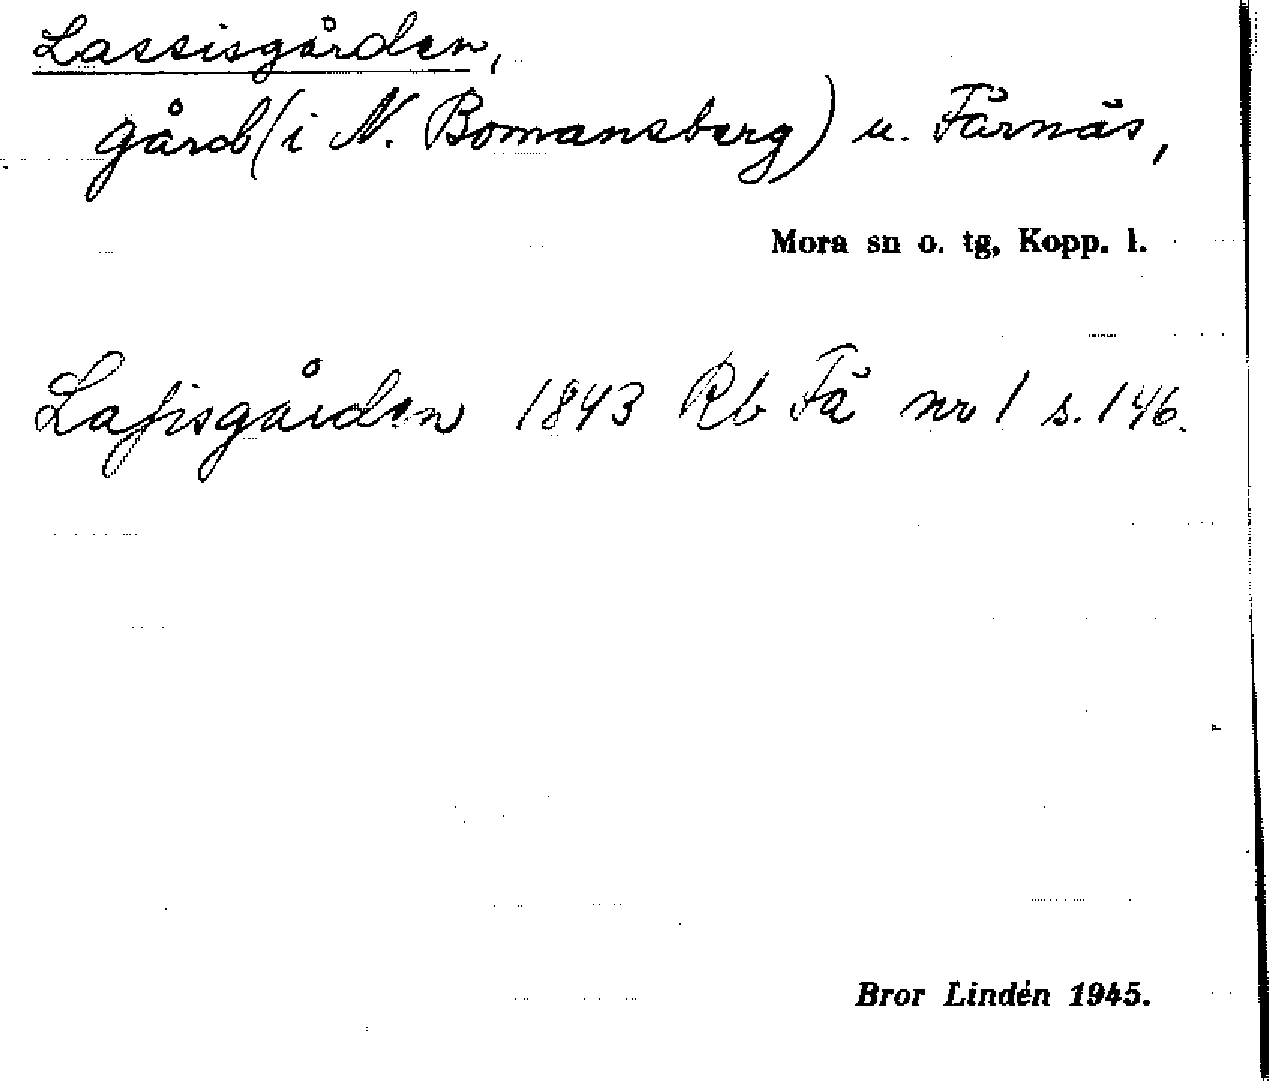 Lassisgården,
gård (i N. Bomansberg) u. Färnäs,
Mora sn o. tg, Kopp. l.
Laſsisgården 1843 Rb Fä nr 1 s. 146.
Bror Lindén 1945.